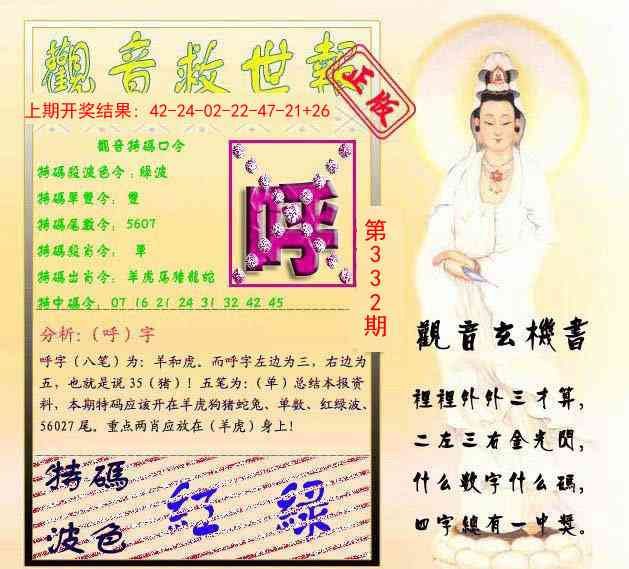 觀音救世報
正版
上期开奖结果：42-24-02-22-47-21+26
觀音特碼口令
特碼段波色令：綠波
特碼單雙令： 雙
特碼尾數令： 5607
特碼段肖令： 單
特碼出肖令： 羊虎馬豬龍蛇
特中碼令： 07 16 21 24 31 32 42 45
呼
第332期
分析：（呼）字
呼字（八笔）为：羊和虎。而呼字左边为三，右边为
五，也就是说 35（猪）！五笔为：（单）总结本报资
料，本期特码应该开在羊虎狗猪蛇兔、单数、红绿波、
56027 尾。重点两肖应放在（羊虎）身上！
特碼
波色
紅 綠
觀音玄機書
裡裡外外三才算，
二左三右金光閃，
什么数字什么碼，
四字總有一中獎。